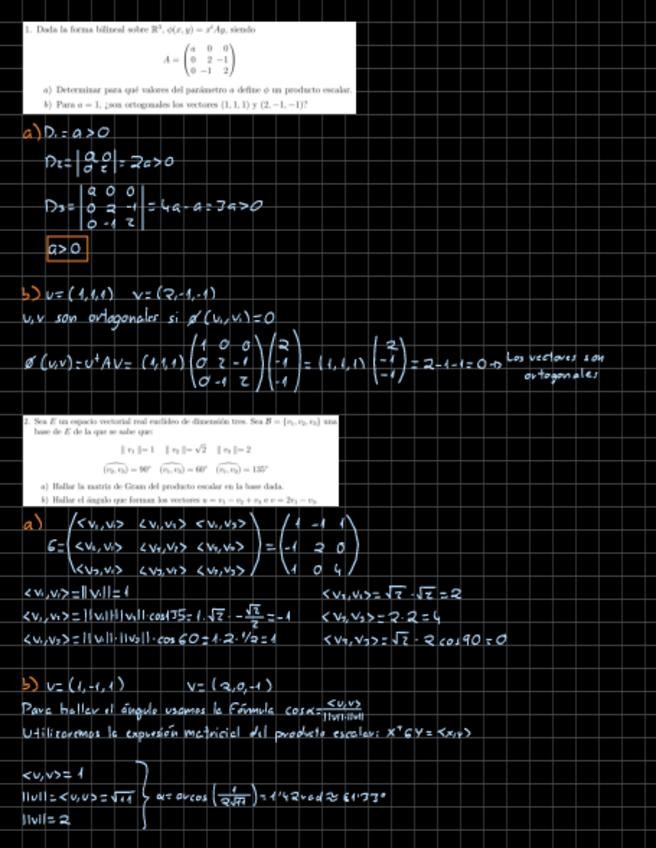 1. Dada la forma bilineal sobre ℝ³, ϕ(x, y) = xᵗAy, siendo
A = (a 0 0
0 2 −1
0 −1 2)
a) Determinar para qué valores del parámetro a define ϕ un producto escalar.
b) Para a = 1, ¿son ortogonales los vectores (1, 1, 1) y (2, −1, −1)?
a) D₁ = a > 0
D₂ = |a 0
0 2| = 2a > 0
D₃ = |a 0 0
0 2 -1
0 -1 2| = 4a - a = 3a > 0
a > 0
b) u = (1,1,1) v = (2,-1,-1)
u, v son ortogonales si ϕ(u, v) = 0
ϕ(u,v) = uᵗAv = (1,1,1) (1 0 0
0 2 -1
0 -1 2) (2
-1
-1) = (1,1,1) (2
-1
-1) = 2-1-1 = 0 → Los vectores son
ortogonales
2. Sea E un espacio vectorial real euclídeo de dimensión tres. Sea B = {v₁, v₂, v₃} una
base de E de la que se sabe que:
‖ v₁ ‖= 1 ‖ v₂ ‖= √2 ‖ v₃ ‖= 2
(v₂, v₃) = 90° (v₁, v₃) = 60° (v₁, v₂) = 135°
a) Hallar la matriz de Gram del producto escalar en la base dada.
b) Hallar el ángulo que forman los vectores u = v₁ − v₂ + v₃ o v = 2v₁ − v₃.
a) G = (<v₁,v₁> <v₁,v₂> <v₁,v₃>
<v₂,v₁> <v₂,v₂> <v₂,v₃>
<v₃,v₁> <v₃,v₂> <v₃,v₃>) = (1 -1 1
-1 2 0
1 0 4)
<v₁,v₁> = ||v₁|| = 1 <v₂,v₂> = √2 · √2 = 2
<v₁,v₂> = ||v₁||·||v₂|| · cos 135 = 1 · √2 · -√2/2 = -1 <v₃,v₃> = 2·2 = 4
<v₁,v₃> = ||v₁||·||v₃|| · cos 60 = 1·2·1/2 = 1 <v₂,v₃> = √2 · 2 cos 90 = 0
b) u = (1,-1,1) v = (2,0,-1)
Para hallar el ángulo usamos la fórmula cos α = <u,v>/||u||·||v||
Utilizaremos la expresión matricial del producto escalar: XᵗGY = <x,y>
<u,v> = 1
||u|| = <u,u> = √11 } α = arcos (1/2√11) = 1'42 rad ≈ 81'33°
||v|| = 2